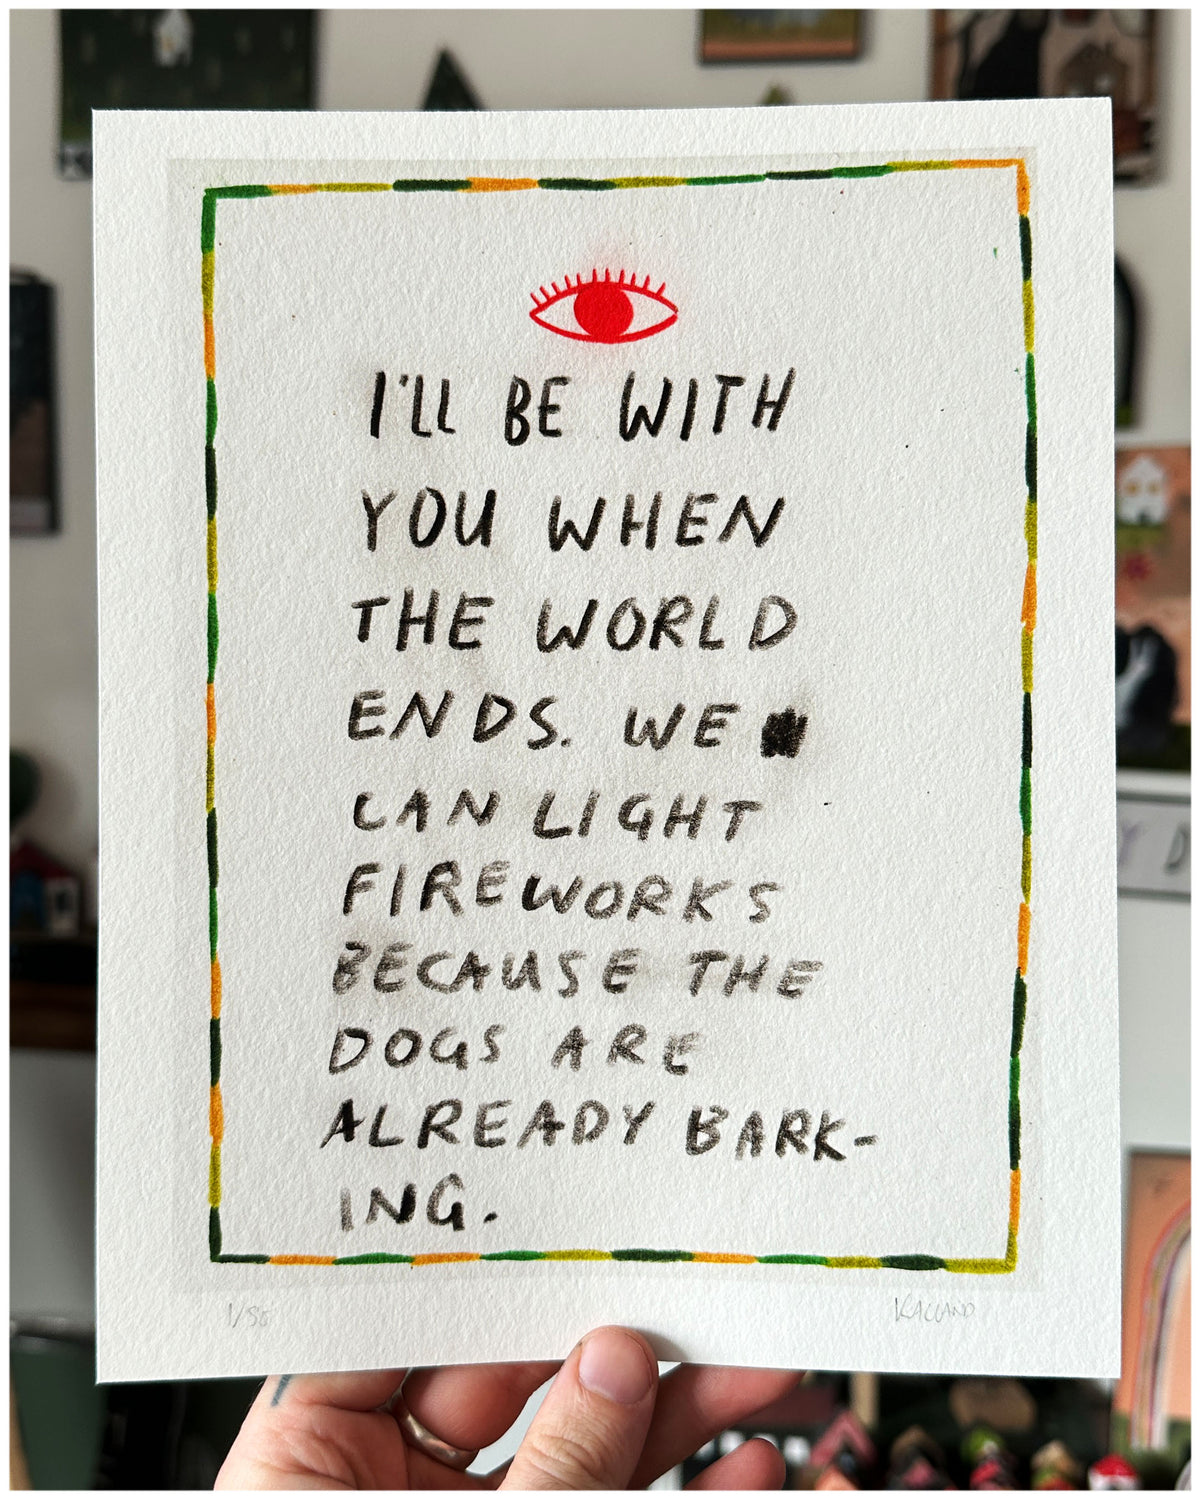 I'LL BE WITH
YOU WHEN
THE WORLD
ENDS. WE
CAN LIGHT
FIREWORKS
BECAUSE THE
DOGS ARE
ALREADY BARK-
ING.
KALLAND